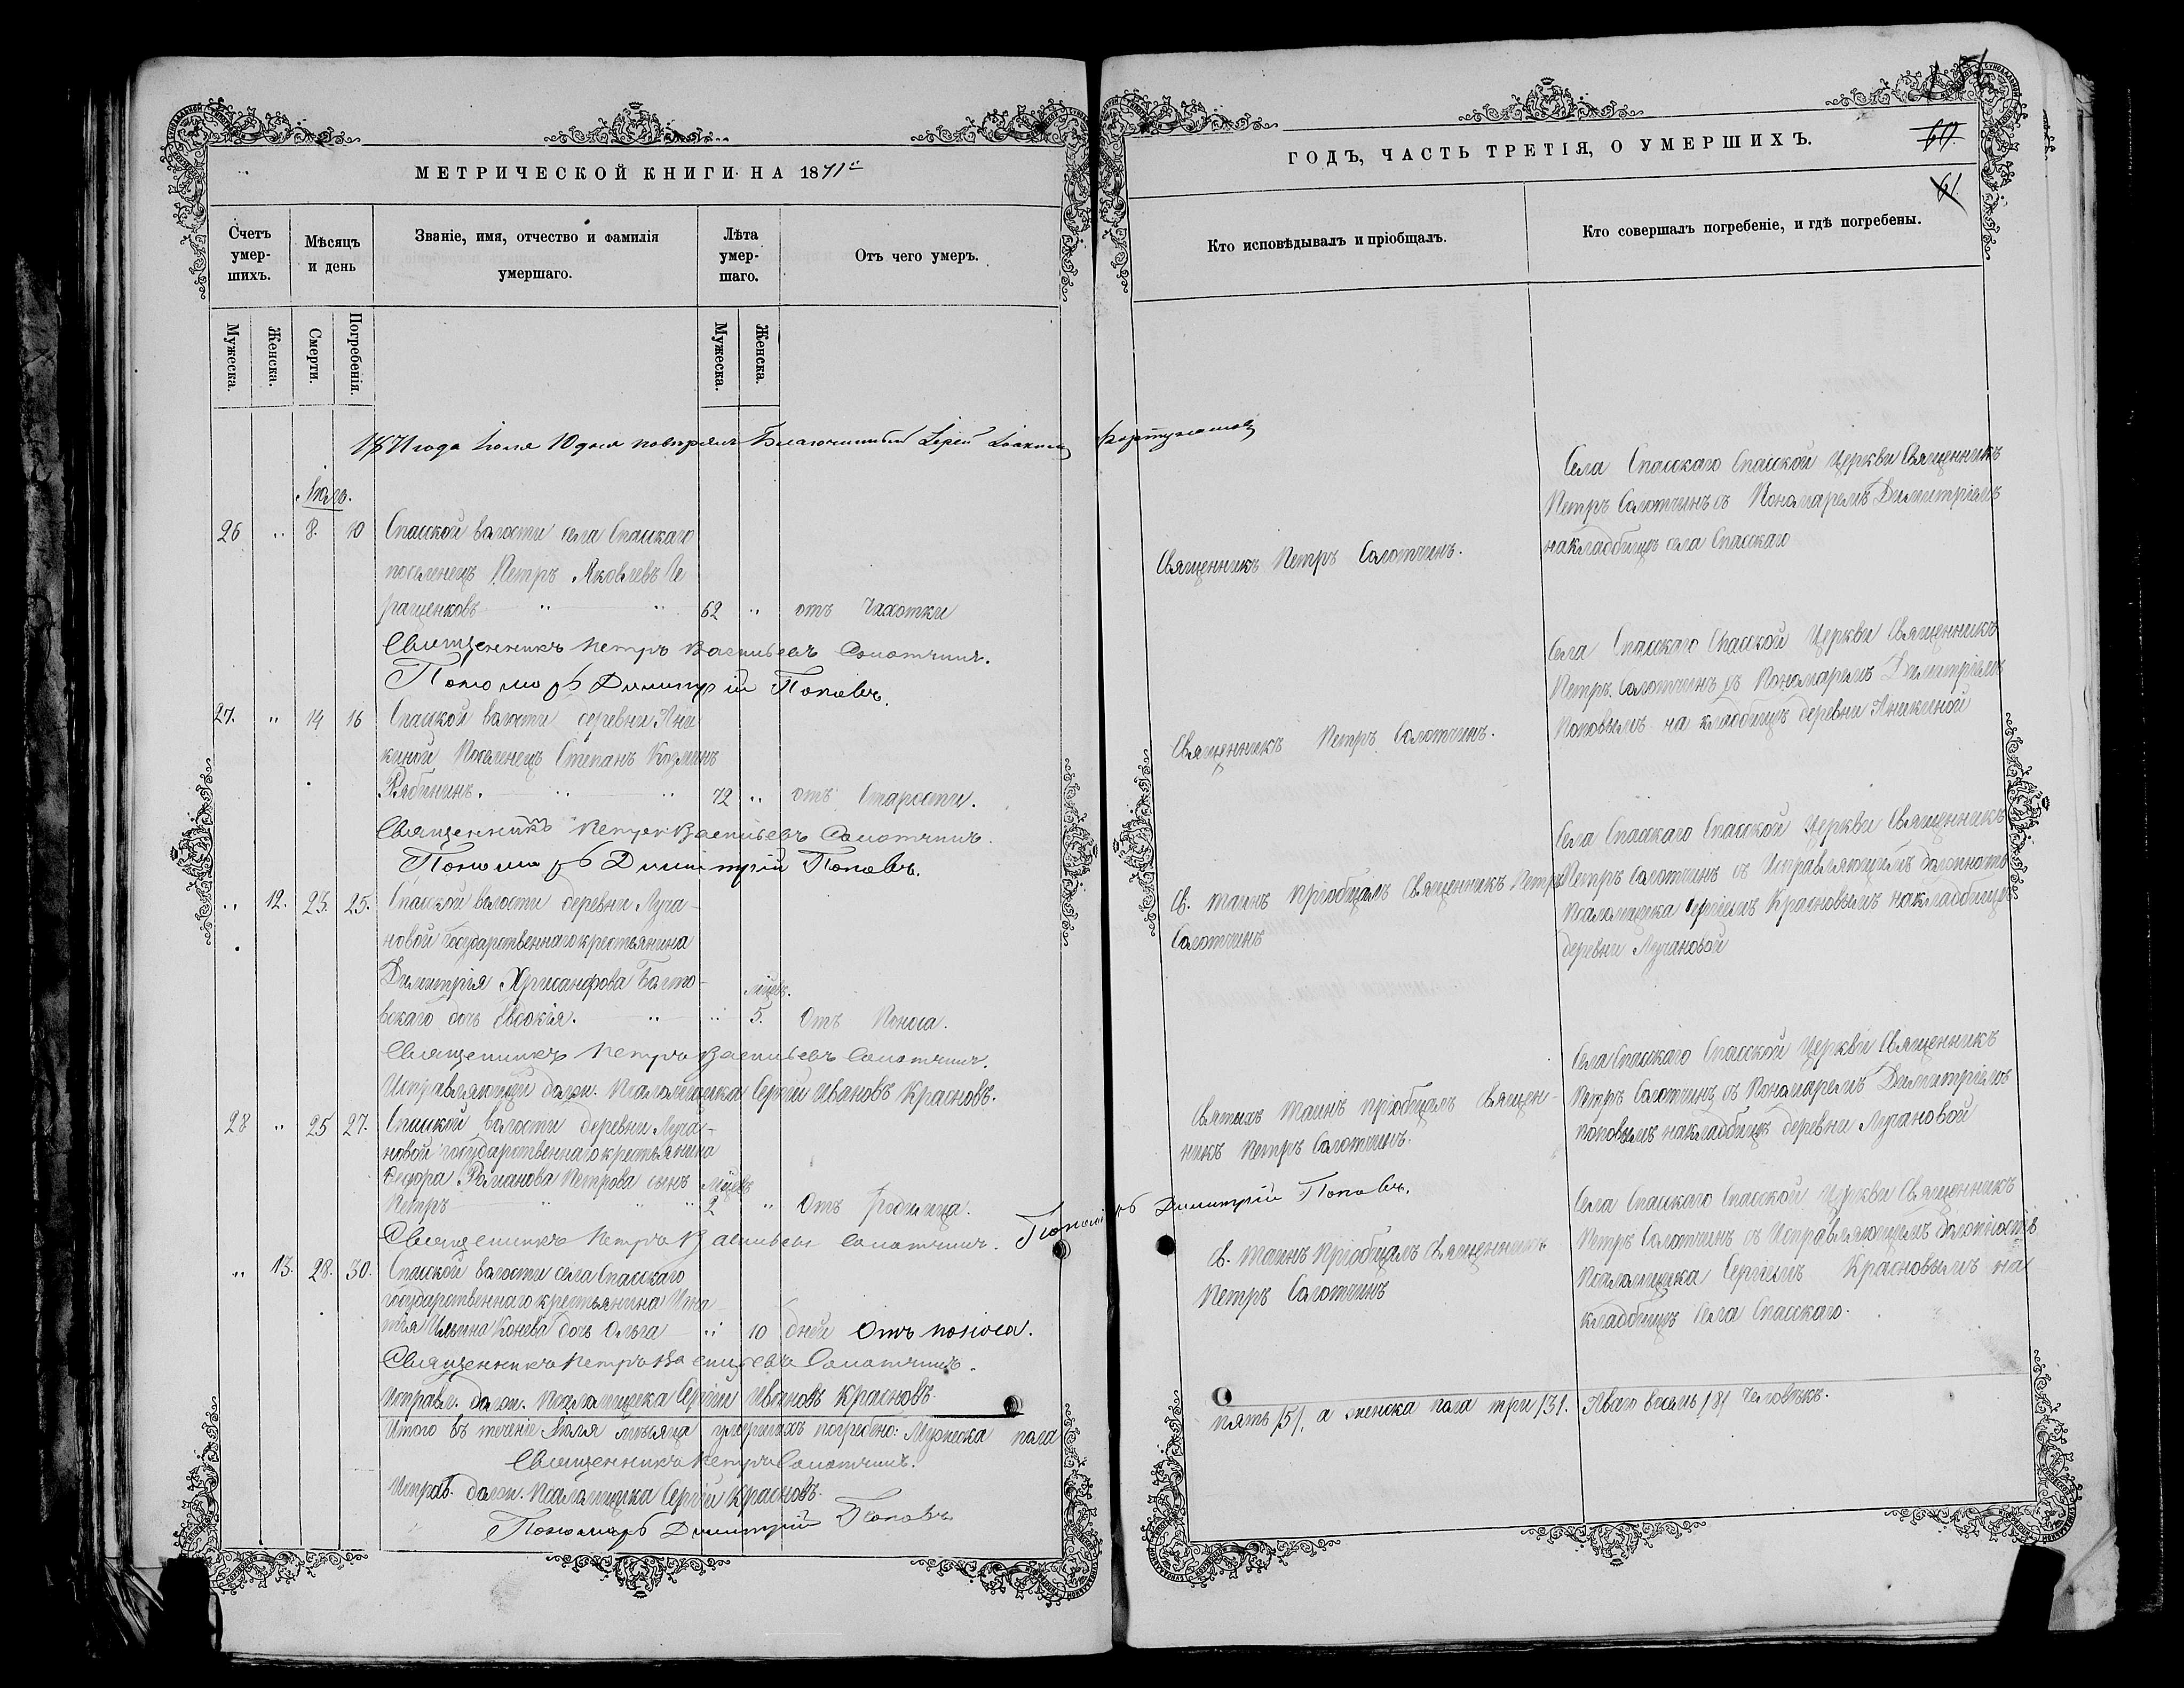 МЕТРИЧЕСКОЙ КНИГИ НА 1871й
Счетъ умер-шихъ.
Мѣсяцъ и день
Званіе, имя, отчество и фамилія умершаго.
Лѣта умер-шаго.
Отъ чего умеръ.
Мужеска.
Женска.
Смерти.
Погребенія.
Мужеска.
Женска.
1871 года Іюля 10 дня Благочинный Іерей Іоаннъ
Іюль.
26 " 8. 10 Спасской волости села Спасскаго
поселенецъ Петръ Яковлевъ Ге
ращенковъ " " 62 " отъ Чахотки
Священникъ Петръ Васильевъ Солотчинъ.
Пономарь Димитрій Поповъ.
27. " 14 16 Спасской волости деревни Ани
киной Поселенецъ Степанъ Козминъ
Рябининъ. " " 72 " отъ Старости.
Священникъ Петръ Васильевъ Солотчинъ.
Пономарь Димитрій Поповъ.
" 12. 23. 25. Спасской волости деревни Луча-
новой Государственнаго крестьянина
Димитрія Хрисанфова Балто-
вскаго дочь Евдокія. " " 5. мѣсяц. Отъ Поноса.
Священникъ Петръ Васильевъ Солотчинъ.
Исправляющій долж. Псаломщика Сергій Ивановъ Красновъ.
28 " 25 27. Спасской волости деревни Луча-
новой государственнаго крестьянина
Федора Романова Петрова сынъ
Петръ " " " 2 мѣсяц. " Отъ родимца.
Священникъ Петръ Васильевъ Солотчинъ. Пономарь Димитрій Поповъ.
" 13. 28. 30. Спасской волости села Спасскаго
государственнаго крестьянина Игна
тія Ильина Конева дочь Ольга " 10 дней Отъ поноса.
Священникъ Петръ Васильевъ Солотчинъ.
Исправл. долж. Псаломщика Сергій Ивановъ Красновъ.
Итого въ теченіе Іюля мѣсяца умершихъ погребено: Мужеска пола
Священникъ Петръ Солотчинъ.
Исправ. долж. Псаломщика Сергій Красновъ.
Пономарь Димитрій Поповъ
ГОДЪ, ЧАСТЬ ТРЕТІЯ, О УМЕРШИХЪ.
61.
Кто исповѣдывалъ и пріобщалъ.
Кто совершалъ погребеніе, и гдѣ погребены.
Священникъ Петръ Солотчинъ.
Села Спасскаго Спасской Церкви Священникъ
Петръ Солотчинъ съ Пономаремъ Димитріемъ
на кладбищѣ села Спасскаго
Священникъ Петръ Солотчинъ.
Села Спасскаго Спасской Церкви Священникъ
Петръ Солотчинъ съ Пономаремъ Димитріемъ
Поповымъ на кладбищѣ деревни Аникиной
Св. Таинъ пріобщалъ Священникъ Петръ
Солотчинъ
Села Спасскаго Спасской Церкви Священникъ
Петръ Солотчинъ съ Исправляющимъ должность
Псаломщика Сергіемъ Красновымъ на кладбищѣ
деревни Лучановой
Святыхъ Таинъ пріобщалъ Священ-
никъ Петръ Солотчинъ.
Села Спасскаго Спасской Церкви Священникъ
Петръ Солотчинъ съ Пономаремъ Димитріемъ
Поповымъ на кладбищѣ деревни Лучановой
Св. Таинъ Пріобщалъ Священникъ
Петръ Солотчинъ
Села Спасскаго Спасской Церкви Священникъ
Петръ Солотчинъ съ Исправляющимъ должность
Псаломщика Сергіемъ Красновымъ на
кладбищѣ Села Спасскаго.
пять /5/, а женска пола три /3/. А всего восемь /8/ человѣкъ.